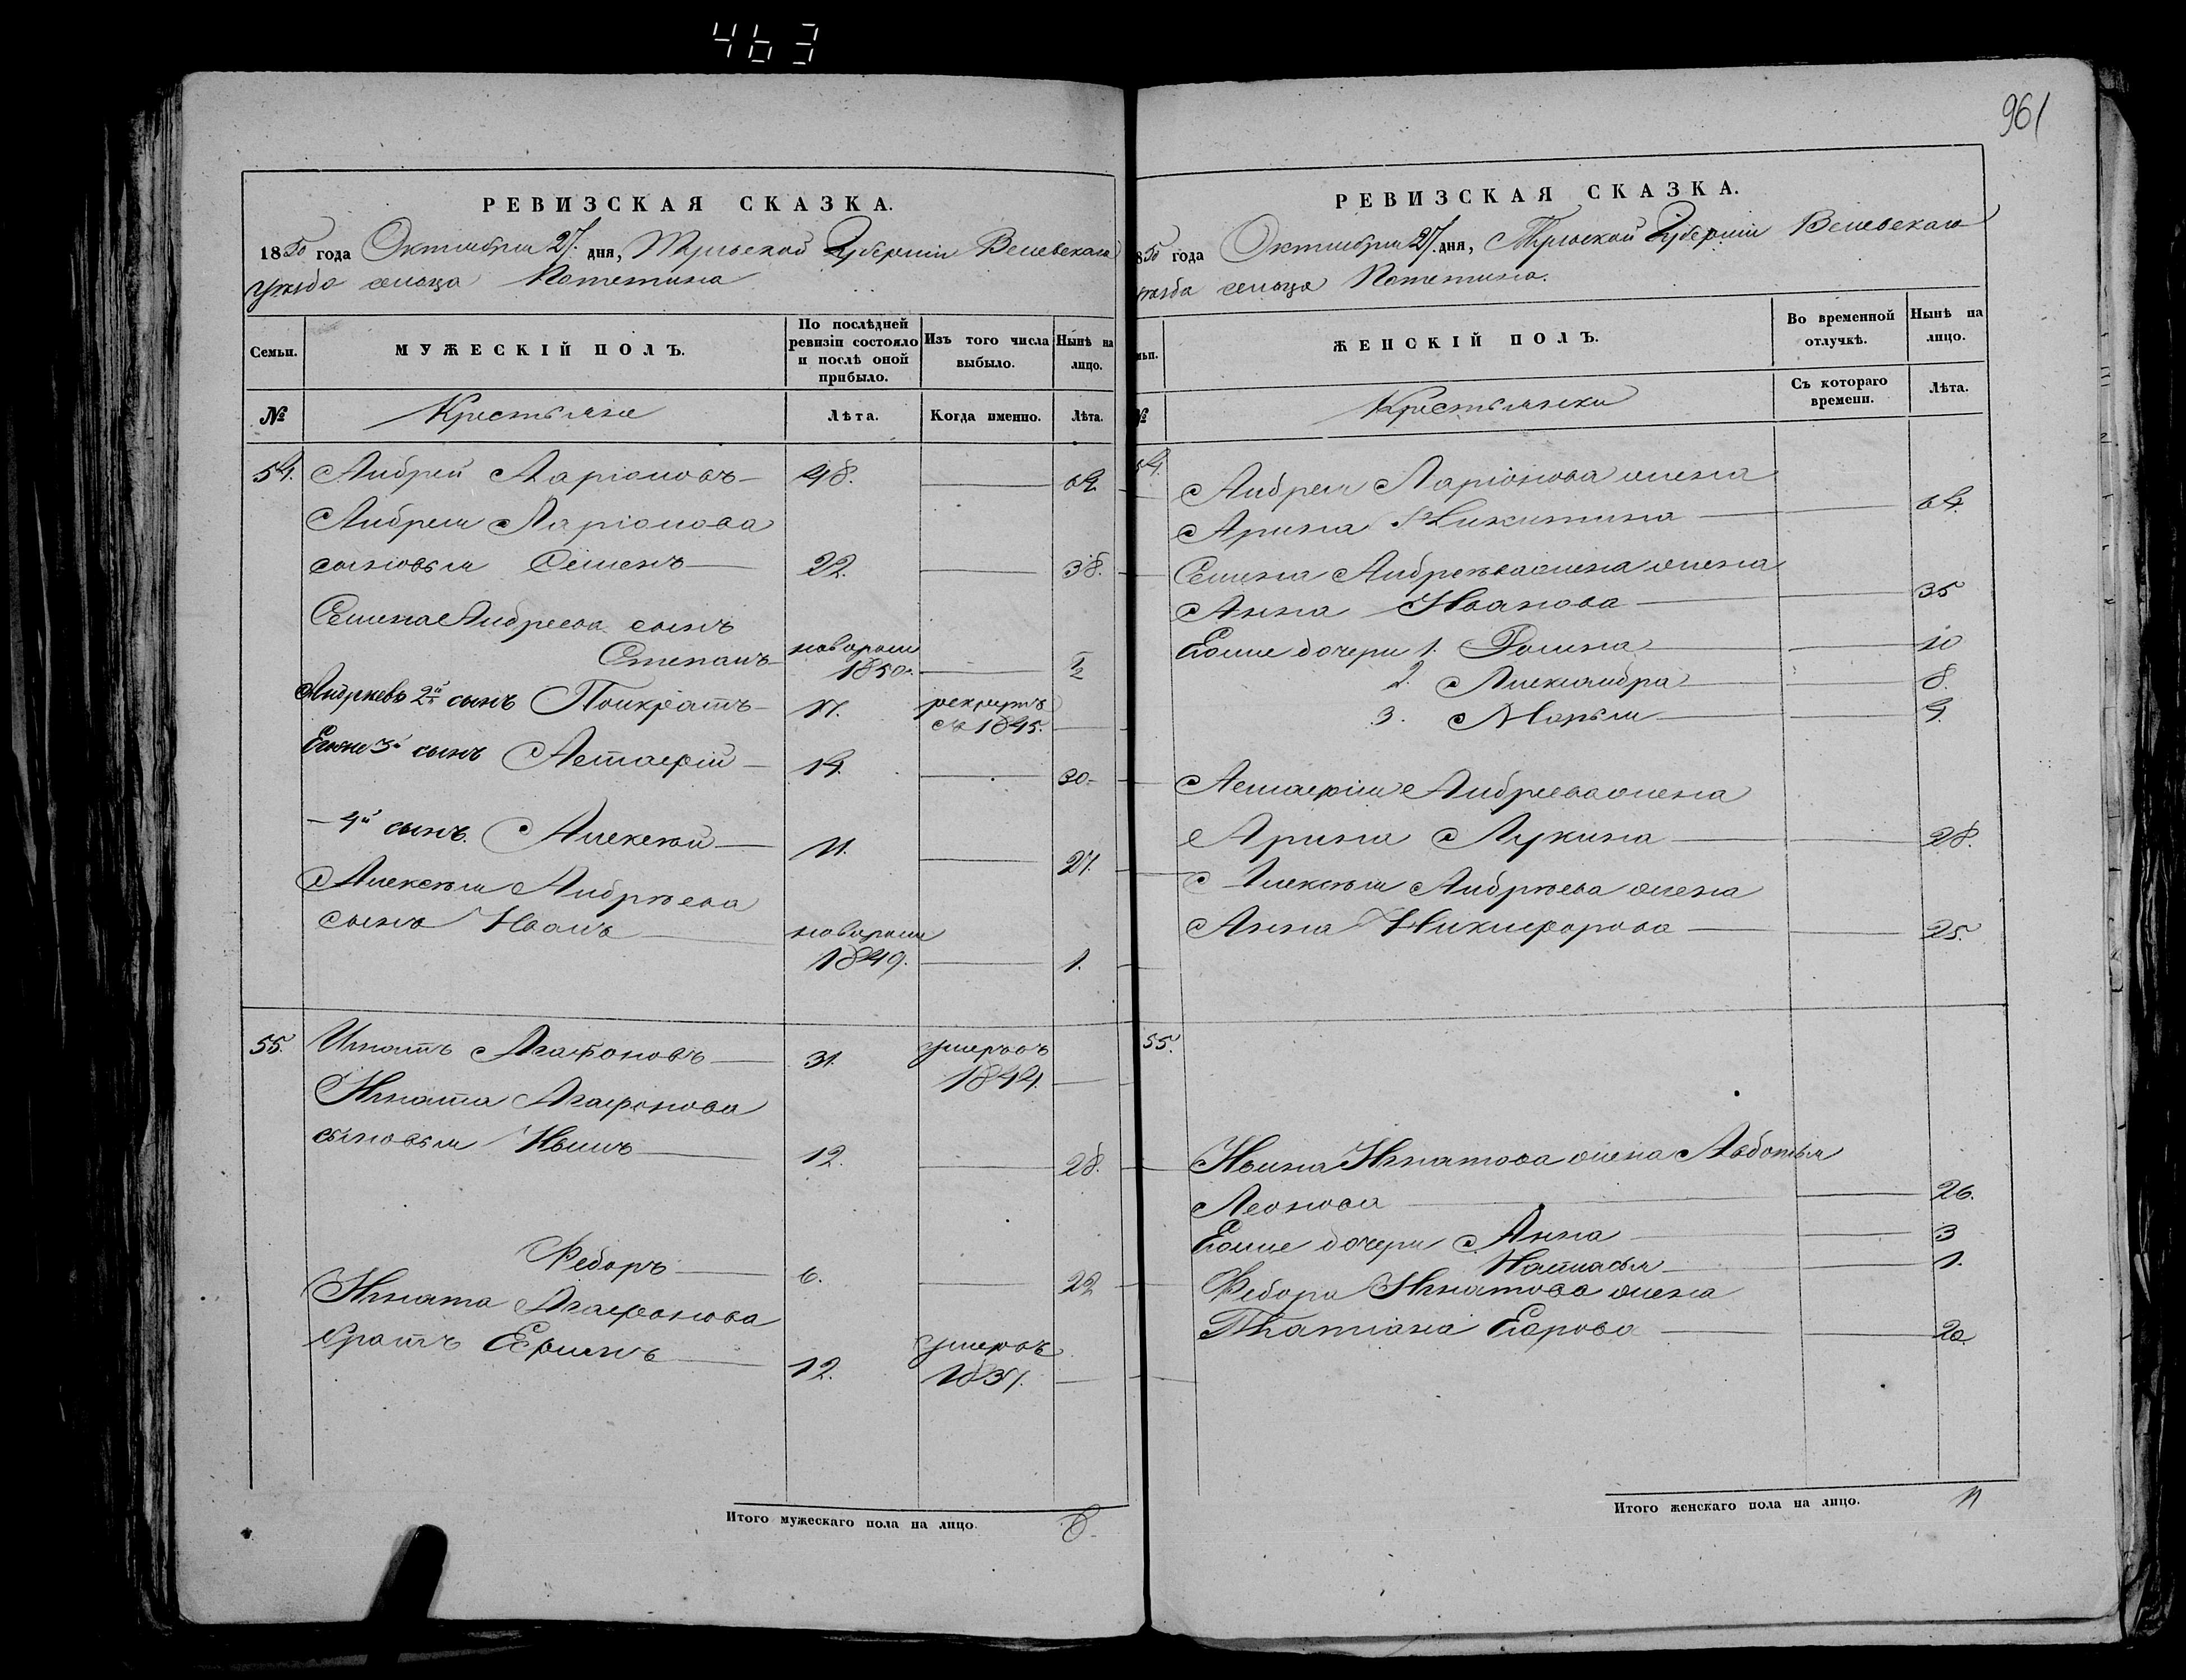 463
961
РЕВИЗСКАЯ СКАЗКА.
1850 года Октября 27. дня, Тульской Губерніи Веневскаго
уѣзда сельца
Семьи.
МУЖЕСКІЙ ПОЛЪ.
По послѣдней ревизіи состояло и послѣ оной прибыло.
Изъ того числа выбыло.
Нынѣ на лицо.
№
Крестьяне
Лѣта.
Когда именно.
Лѣта.
54. Андрей Ларіоновъ 48. 64
Андрея Ларіонова
сыновья Семенъ 22. 38.
Семена Андреева сынъ
Степанъ новорож 1850. ½
Андреевъ 2й сынъ Понкратъ 17. рекрутъ съ 1845.
Евоже 3й сынъ Астафій 14. 30
4й сынъ. Алексѣй 11. 27.
Алексѣя Андрѣева
сынъ Иванъ новорож 1849. 1.
55. Игнатъ Агафоновъ 31. умеръ въ 1844.
Игната Агафонова
сыновья 12. 28.
Федоръ 6. 22
Игната Агафонова
братъ 12. умеръ 1837.
Итого мужескаго пола на лицо. 8
РЕВИЗСКАЯ СКАЗКА.
1850 года Октября 27. дня, Тульской Губерніи Веневскаго
уѣзда сельца
ЖЕНСКІЙ ПОЛЪ.
Во временной отлучкѣ.
Нынѣ на лицо.
№
Крестьянки
Съ котораго времени.
Лѣта.
54. Андрея Ларіонова жена
Арина Никитина 64
Семена жена
Анна Иванова 35
Евоже дочери 1. 10
2. Александра 8.
3. Марья 4.
Астафія Андреева жена
Арина Лукина 28.
Алексѣя Андрѣева жена
Анна Никифорова 25.
55.
Игнатова жена Авдотья
Леонова 26.
Евоже дочери Анна 3
Настасья 1.
Федора Игнатова жена
Татіана Егорова 20
Итого женскаго пола на лицо. 11